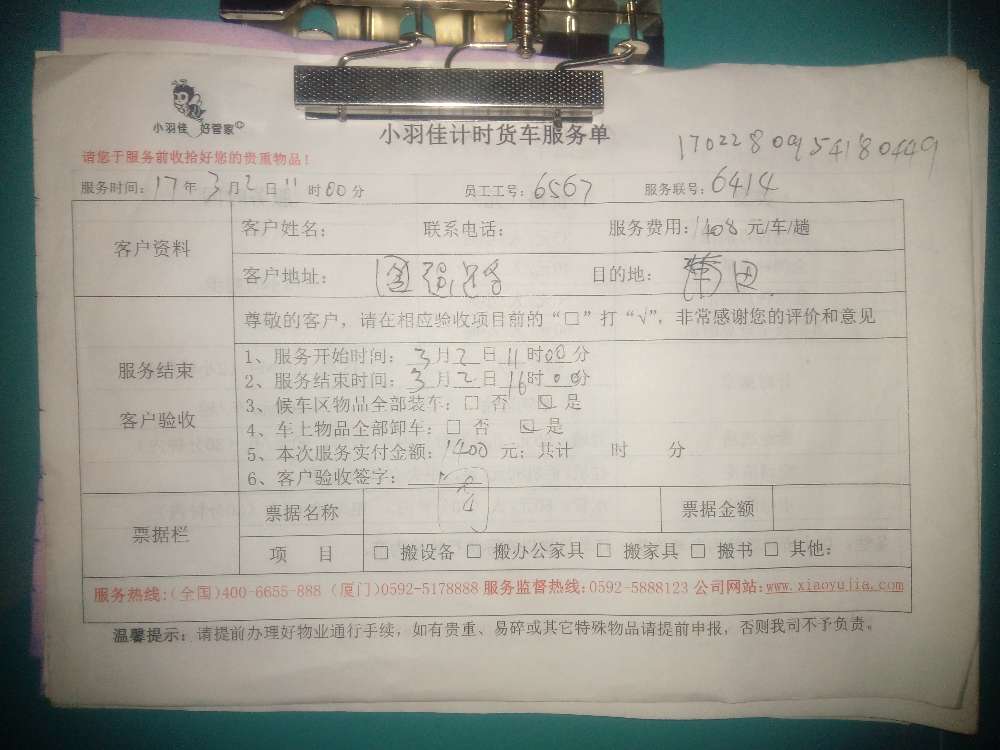 小羽佳 好管家
小羽佳计时货车服务单
1702280954180449
请您于服务前收拾好您的贵重物品！
服务时间：17年3月2日11时00分 员工工号：6567 服务联号：6414
客户资料
客户姓名： 联系电话： 服务费用：1408元/车/趟
客户地址： 目的地：
尊敬的客户，请在相应验收项目前的“□”打“√”，非常感谢您的评价和意见
服务结束
客户验收
1、服务开始时间：3月2日11时00分
2、服务结束时间：3月2日16时00分
3、候车区物品全部装车：□ 否 ☑ 是
4、车上物品全部卸车：□ 否 ☑ 是
5、本次服务实付金额：1400元；共计 时 分
6、客户验收签字：
票据栏
票据名称 票据金额
项 目 □ 搬设备 □ 搬办公家具 □ 搬家具 □ 搬书 □ 其他：
服务热线：(全国)400-6655-888 (厦门)0592-5178888 服务监督热线：0592-5888123 公司网站：www.xiaoyujia.com
温馨提示：请提前办理好物业通行手续，如有贵重、易碎或其它特殊物品请提前申报，否则我司不予负责。